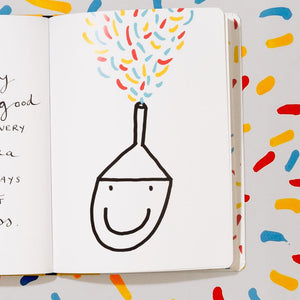 y
good
VERY
a
AYS
T
os.